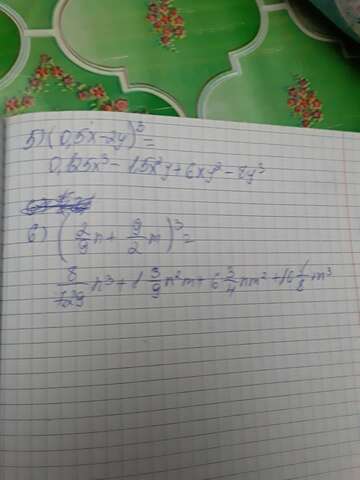 5) (0,5x-2y)³=
0,125x³ - 1,5x²y + 6xy² - 8y³
6) (2/9 n + 9/2 m)³=
8/729 n³ + 3/9 n²m + 6 3/4 nm² + m³